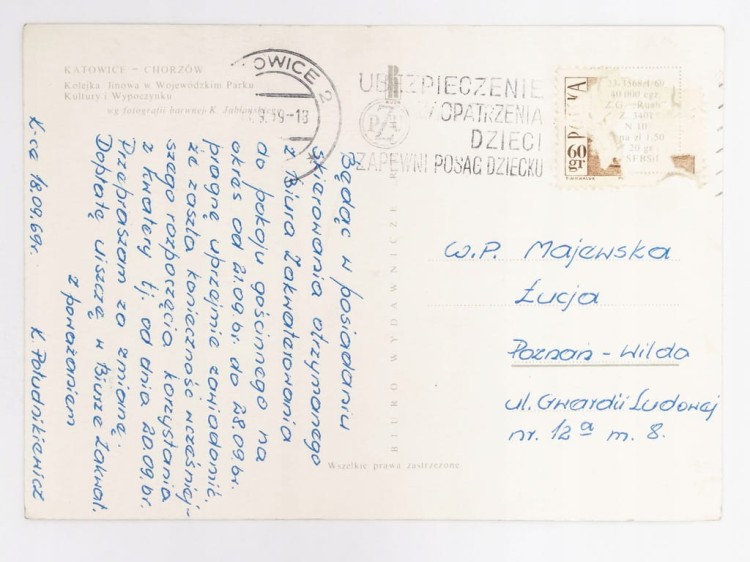 KATOWICE – CHORZÓW
Kolejka linowa w Wojewódzkim Parku
Kultury i Wypoczynku
wg fotografii barwnej K. Jabłońskiego
OWICE 2
UBEZPIECZENIE
ZAOPATRZENIA
DZIECI
ZAPEWNI POSAG DZIECKU
PZU
POLSKA
60 gr
23-3568/I/69
40 000 egz
Z.G. „Ruch"
Z 3401
N 10
na zł 1,50
20 gr
K-ce 18.09.69r.
Będąc w posiadaniu
skierowania otrzymanego
z Biura Zakwaterowania
do pokoju gościnnego na
okres od 21.09.br. do 28.09.br.
pragnę uprzejmie zawiadomić,
że zaszła konieczność wcześniej-
szego rozpoczęcia korzystania
z kwatery tj. od dnia 20.09.br.
Przepraszam za zmianę.
Dopłatę uiszczę w Biurze Zakwat.
z poważaniem
K. Południkiewicz
BIURO WYDAWNICZE
W.P. Majewska
Łucja
Poznań – Wilda
ul. Gwardii Ludowej
nr. 12a m. 8.
Wszelkie prawa zastrzeżone